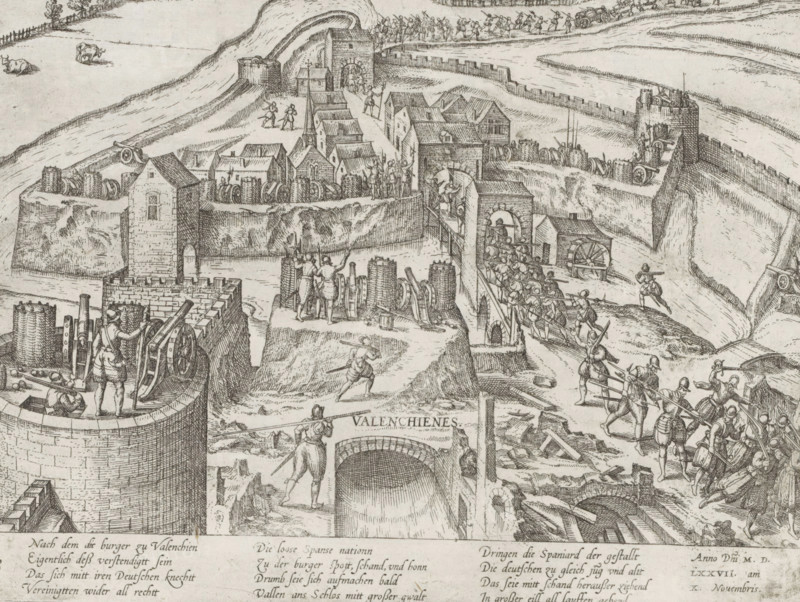 VALENCHIENES.
Nach dem die burger zu Valenchien
Eigentlich deß verstendigtt sein
Das sich mitt iren Deutschen knechtt
Vereinigtten wider all rechtt
Die loose Spanse nationn
Zu der burger Spott, schand, vnd honn
Drumb seie sich aufmachen bald
Vallen ans Schlos mitt großer gwalt
Dringen die Spaniard der gestallt
Die deutschen zu gleich jüg vnd alt
Das seie mitt schand herausser zihend
In großer eill all lauffen
Anno Dñi M. D.
LXXVII. am
X. Nouembris.